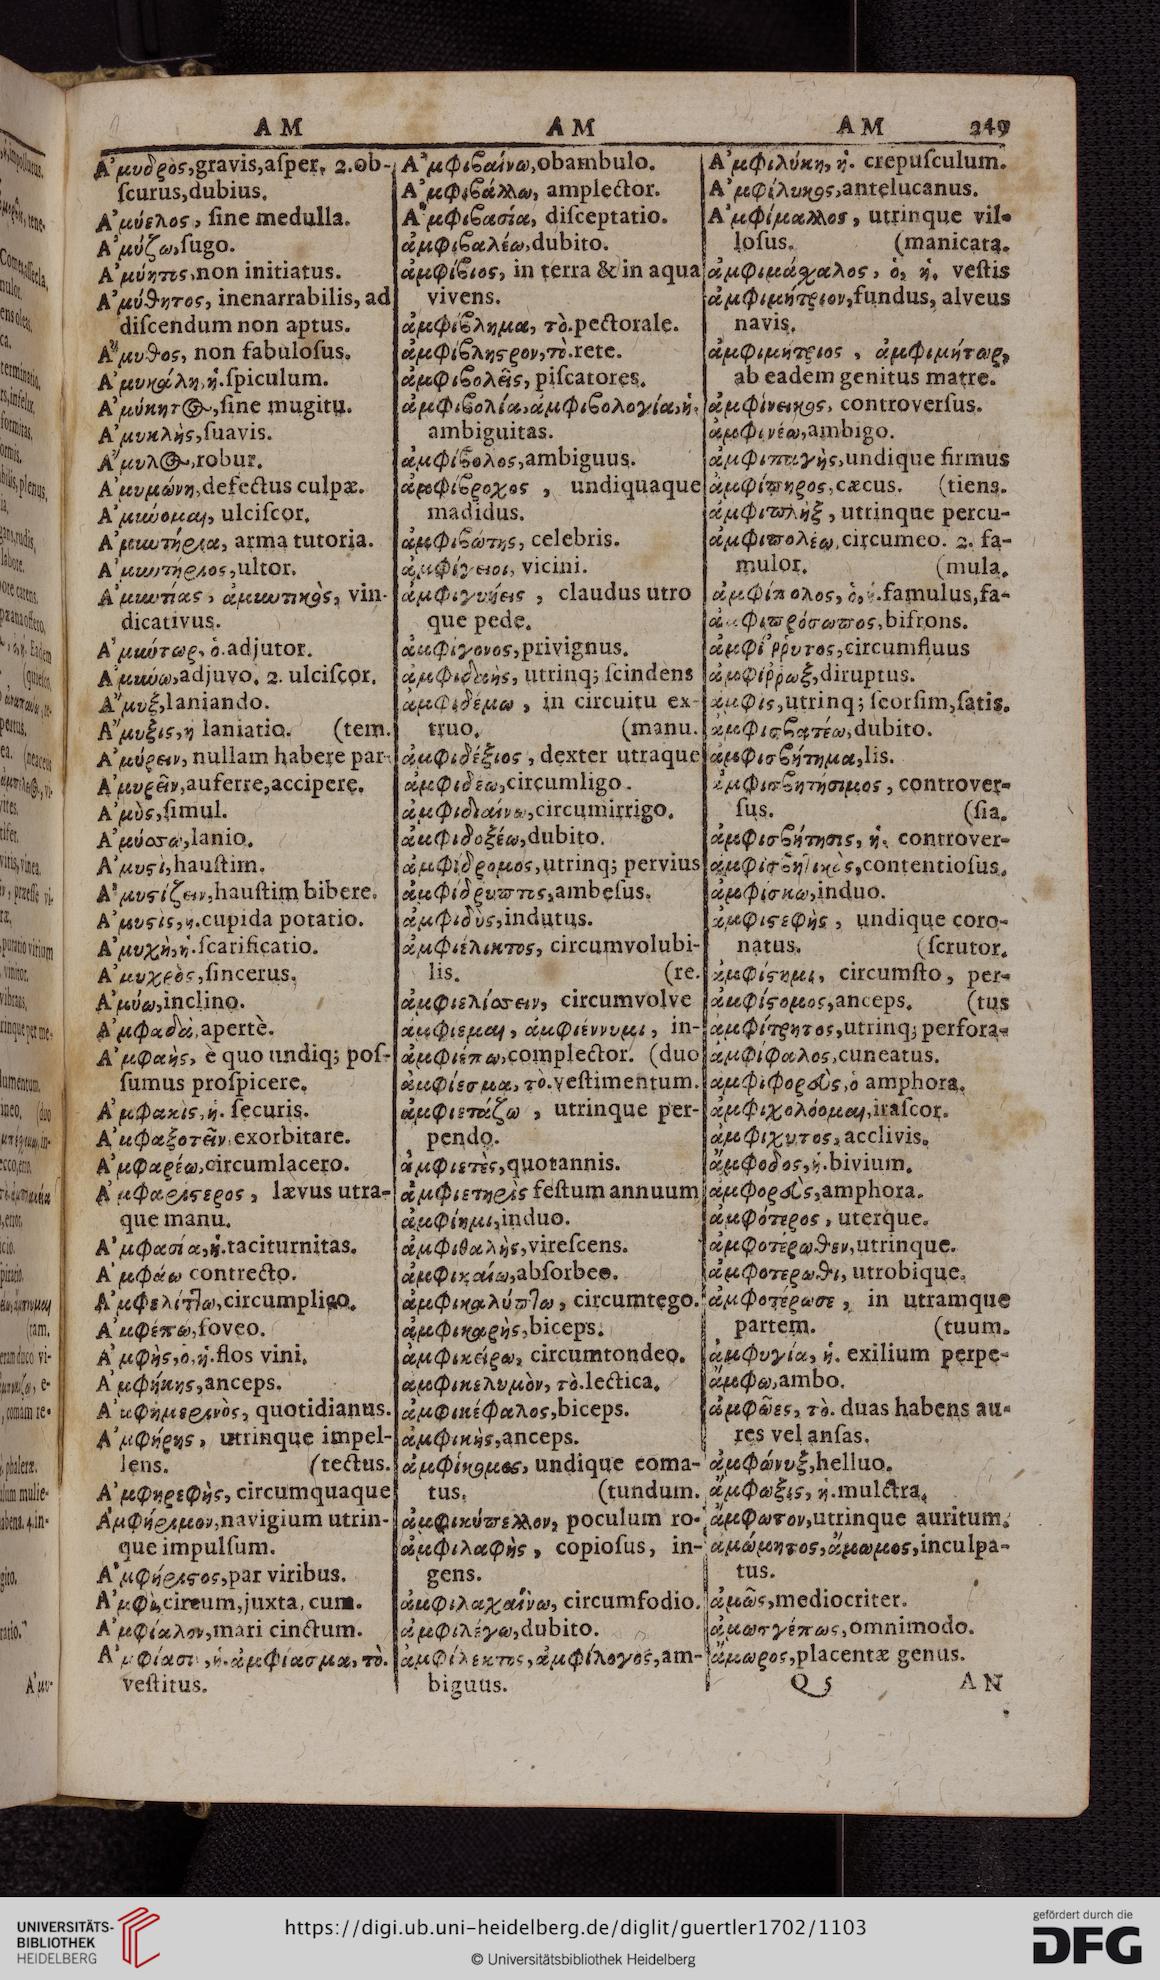 AM AM AM 249
Α’μυδρὸς, gravis, aſper. 2. ob-
ſcurus, dubius.
Α’μύελος, ſine medulla.
Α’μύζω, ſugo.
Α’μύητος, non initiatus.
Α’μύθητος, inenarrabilis, ad
diſcendum non aptus.
Α῎μυθος, non fabuloſus.
Α’μυκάλη, ἡ. ſpiculum.
Α’μύκητος, ſine mugitu.
Α’μυκλὴς, ſuavis.
Α῎μυλος, robur.
Α’μυμώνη, defectus culpæ.
Α’μιύομαι, ulciſcor.
Α’μιωτήρια, arma tutoria.
Α’μιωτήριος, ultor.
Α’μιωτίας, ἀμιωτικὸς, vin-
dicativus.
Α’μιύτωρ, ὁ. adjutor.
Α’μιύω, adjuvo. 2. ulciſcor.
Α῎μυξ, laniando.
Α῎μυξις, η laniatio. (tem.
Α’μύρειν, nullam habere par-
Α’μυρεῖν, auferre, accipere.
Α’μὺς, ſimul.
Α’μύσσω, lanio.
Α’μυστὶ, hauſtim.
Α’μυστίζειν, hauſtim bibere.
Α’μυστὶς, η. cupida potatio.
Α’μυχὴ, ἡ. ſcarificatio.
Α’μυχρὸς, ſincerus.
Α’μύω, inclino.
Α’μφαδὰ, apertè.
Α’μφαὴς, è quo undiq; poſ-
ſumus proſpicere.
Α’μφακὶς, ἡ. ſecuris.
Α’μφαξοτεῖν, exorbitare.
Α’μφαρέω, circumlacero.
Α’μφαρίστερος, lævus utra-
que manu.
Α’μφασία, ἡ. taciturnitas.
Α’μφάω contrecto.
Α’μφελίττω, circumplico.
Α’μφέπω, foveo.
Α’μφὴς, ὁ, ἡ. flos vini.
Α’μφήκης, anceps.
Α’μφημερινὸς, quotidianus.
Α’μφήρης, utrinque impel-
lens. (tectus.
Α’μφηρεφὴς, circumquaque
Α’μφήριμον, navigium utrin-
que impulſum.
Α’μφήριστος, par viribus.
Α’μφὶ, circum, juxta, cum.
Α’μφίαλον, mari cinctum.
Α’μφίασις, ἡ. ἀμφίασμα, τὸ.
veſtitus.
Α’μφιβαίνω, obambulo.
Α’μφιβάλλω, amplector.
Α’μφιβασία, diſceptatio.
ἀμφιβαλέω, dubito.
ἀμφίβιος, in terra & in aqua
vivens.
ἀμφίβλημα, τὸ. pectorale.
ἀμφίβληστρον, τὸ. rete.
ἀμφιβολεῖς, piſcatores.
ἀμφιβολία, ἀμφιβολογία, ἡ.
ambiguitas.
ἀμφίβολος, ambiguus.
ἀμφίβροχος, undiquaque
madidus.
ἀμφιβώτης, celebris.
ἀμφίγειοι, vicini.
ἀμφιγυήεις, claudus utro
que pede.
ἀμφίγονος, privignus.
ἀμφιδαὴς, utrinq; ſcindens
ἀμφιδέμω, in circuitu ex-
truo. (manu.
ἀμφιδέξιος, dexter utraque
ἀμφιδέω, circumligo.
ἀμφιδιαίνω, circumirrigo.
ἀμφιδοξέω, dubito.
ἀμφίδρομος, utrinq; pervius
ἀμφιδρύπτις, ambeſus.
ἀμφιδὺς, indutus.
ἀμφιέλικτος, circumvolubi-
lis. (re.
ἀμφιελίσσειν, circumvolve
ἀμφιεμαι, ἀμφιέννυμι, in-
ἀμφιέπω, complector. (duo
ἀμφίεσμα, τὸ. veſtimentum.
ἀμφιετάζω, utrinque per-
pendo.
ἀμφιετὲς, quotannis.
ἀμφιετηρὶς feſtum annuum
ἀμφίημι, induo.
ἀμφιθαλὴς, vireſcens.
ἀμφικαίω, abſorbeo.
ἀμφικαλύπτω, circumtego.
ἀμφικαρὴς, biceps.
ἀμφικείρω, circumtondeo.
ἀμφικελυμὸν, τὸ. lectica.
ἀμφικέφαλος, biceps.
ἀμφικὴς, anceps.
ἀμφίκομος, undique coma-
tus. (tundum.
ἀμφικύπελλον, poculum ro-
ἀμφιλαφὴς, copioſus, in-
gens.
ἀμφιλαχαίνω, circumfodio.
ἀμφιλέγω, dubito.
ἀμφίλεκτος, ἀμφίλογος, am-
biguus.
Α’μφιλύκη, ἡ. crepuſculum.
Α’μφίλυκος, antelucanus.
Α’μφίμαλλος, utrinque vil-
loſus. (manicata.
ἀμφιμάχαλος, ὁ, ἡ. veſtis
ἀμφιμήτριον, fundus, alveus
navis.
ἀμφιμήτριος, ἀμφιμήτωρ,
ab eadem genitus matre.
ἀμφίνεικος, controverſus.
ἀμφινέω, ambigo.
ἀμφιπαγὴς, undique firmus
ἀμφίπηρος, cæcus. (tiens.
ἀμφιπλὴξ, utrinque percu-
ἀμφιπολέω, circumeo. 2. fa-
mulor. (mula.
ἀμφίπολος, ὁ, ἡ. famulus, fa-
ἀμφιπρόσωπος, bifrons.
ἀμφίῤῥυτος, circumfluus
ἀμφίῤῥωξ, diruptus.
ἀμφὶς, utrinq; ſeorſim, ſatis.
ἀμφισβατέω, dubito.
ἀμφισβήτημα, lis.
ἀμφισβητήσιμος, controver-
ſus. (ſia.
ἀμφισβήτησις, ἡ. controver-
ἀμφισβητικὸς, contentioſus.
ἀμφίσκω, induo.
ἀμφιστεφὴς, undique coro-
natus. (ſcrutor.
ἀμφίστημι, circumſto, per-
ἀμφίστομος, anceps. (tus
ἀμφίτρητος, utrinq; perfora-
ἀμφίφαλος, cuneatus.
ἀμφιφορεὺς, ὁ amphora.
ἀμφιχολόομαι, iraſcor.
ἀμφιχυτος, acclivis.
ἄμφοδος, ἡ. bivium.
ἀμφορεὺς, amphora.
ἀμφότερος, uterque.
ἀμφοτέρωθεν, utrinque.
ἀμφοτέρωθι, utrobique.
ἀμφοτέρωσε, in utramque
partem. (tuum.
ἀμφυγία, ἡ. exilium perpe-
ἄμφω, ambo.
ἀμφῶες, τὸ. duas habens au-
res vel anſas.
ἀμφώνυξ, helluo.
ἄμφωξις, ἡ. mulctra.
ἄμφωτον, utrinque auritum.
ἀμώμητος, ἄμωμος, inculpa-
tus.
ἀμῶς, mediocriter.
ἀμωσγέπως, omnimodo.
ἄμωρος, placentæ genus.
Q 5 AN
UNIVERSITÄTS-
BIBLIOTHEK
HEIDELBERG
https://digi.ub.uni-heidelberg.de/diglit/guertler1702/1103
© Universitätsbibliothek Heidelberg
gefördert durch die
DFG